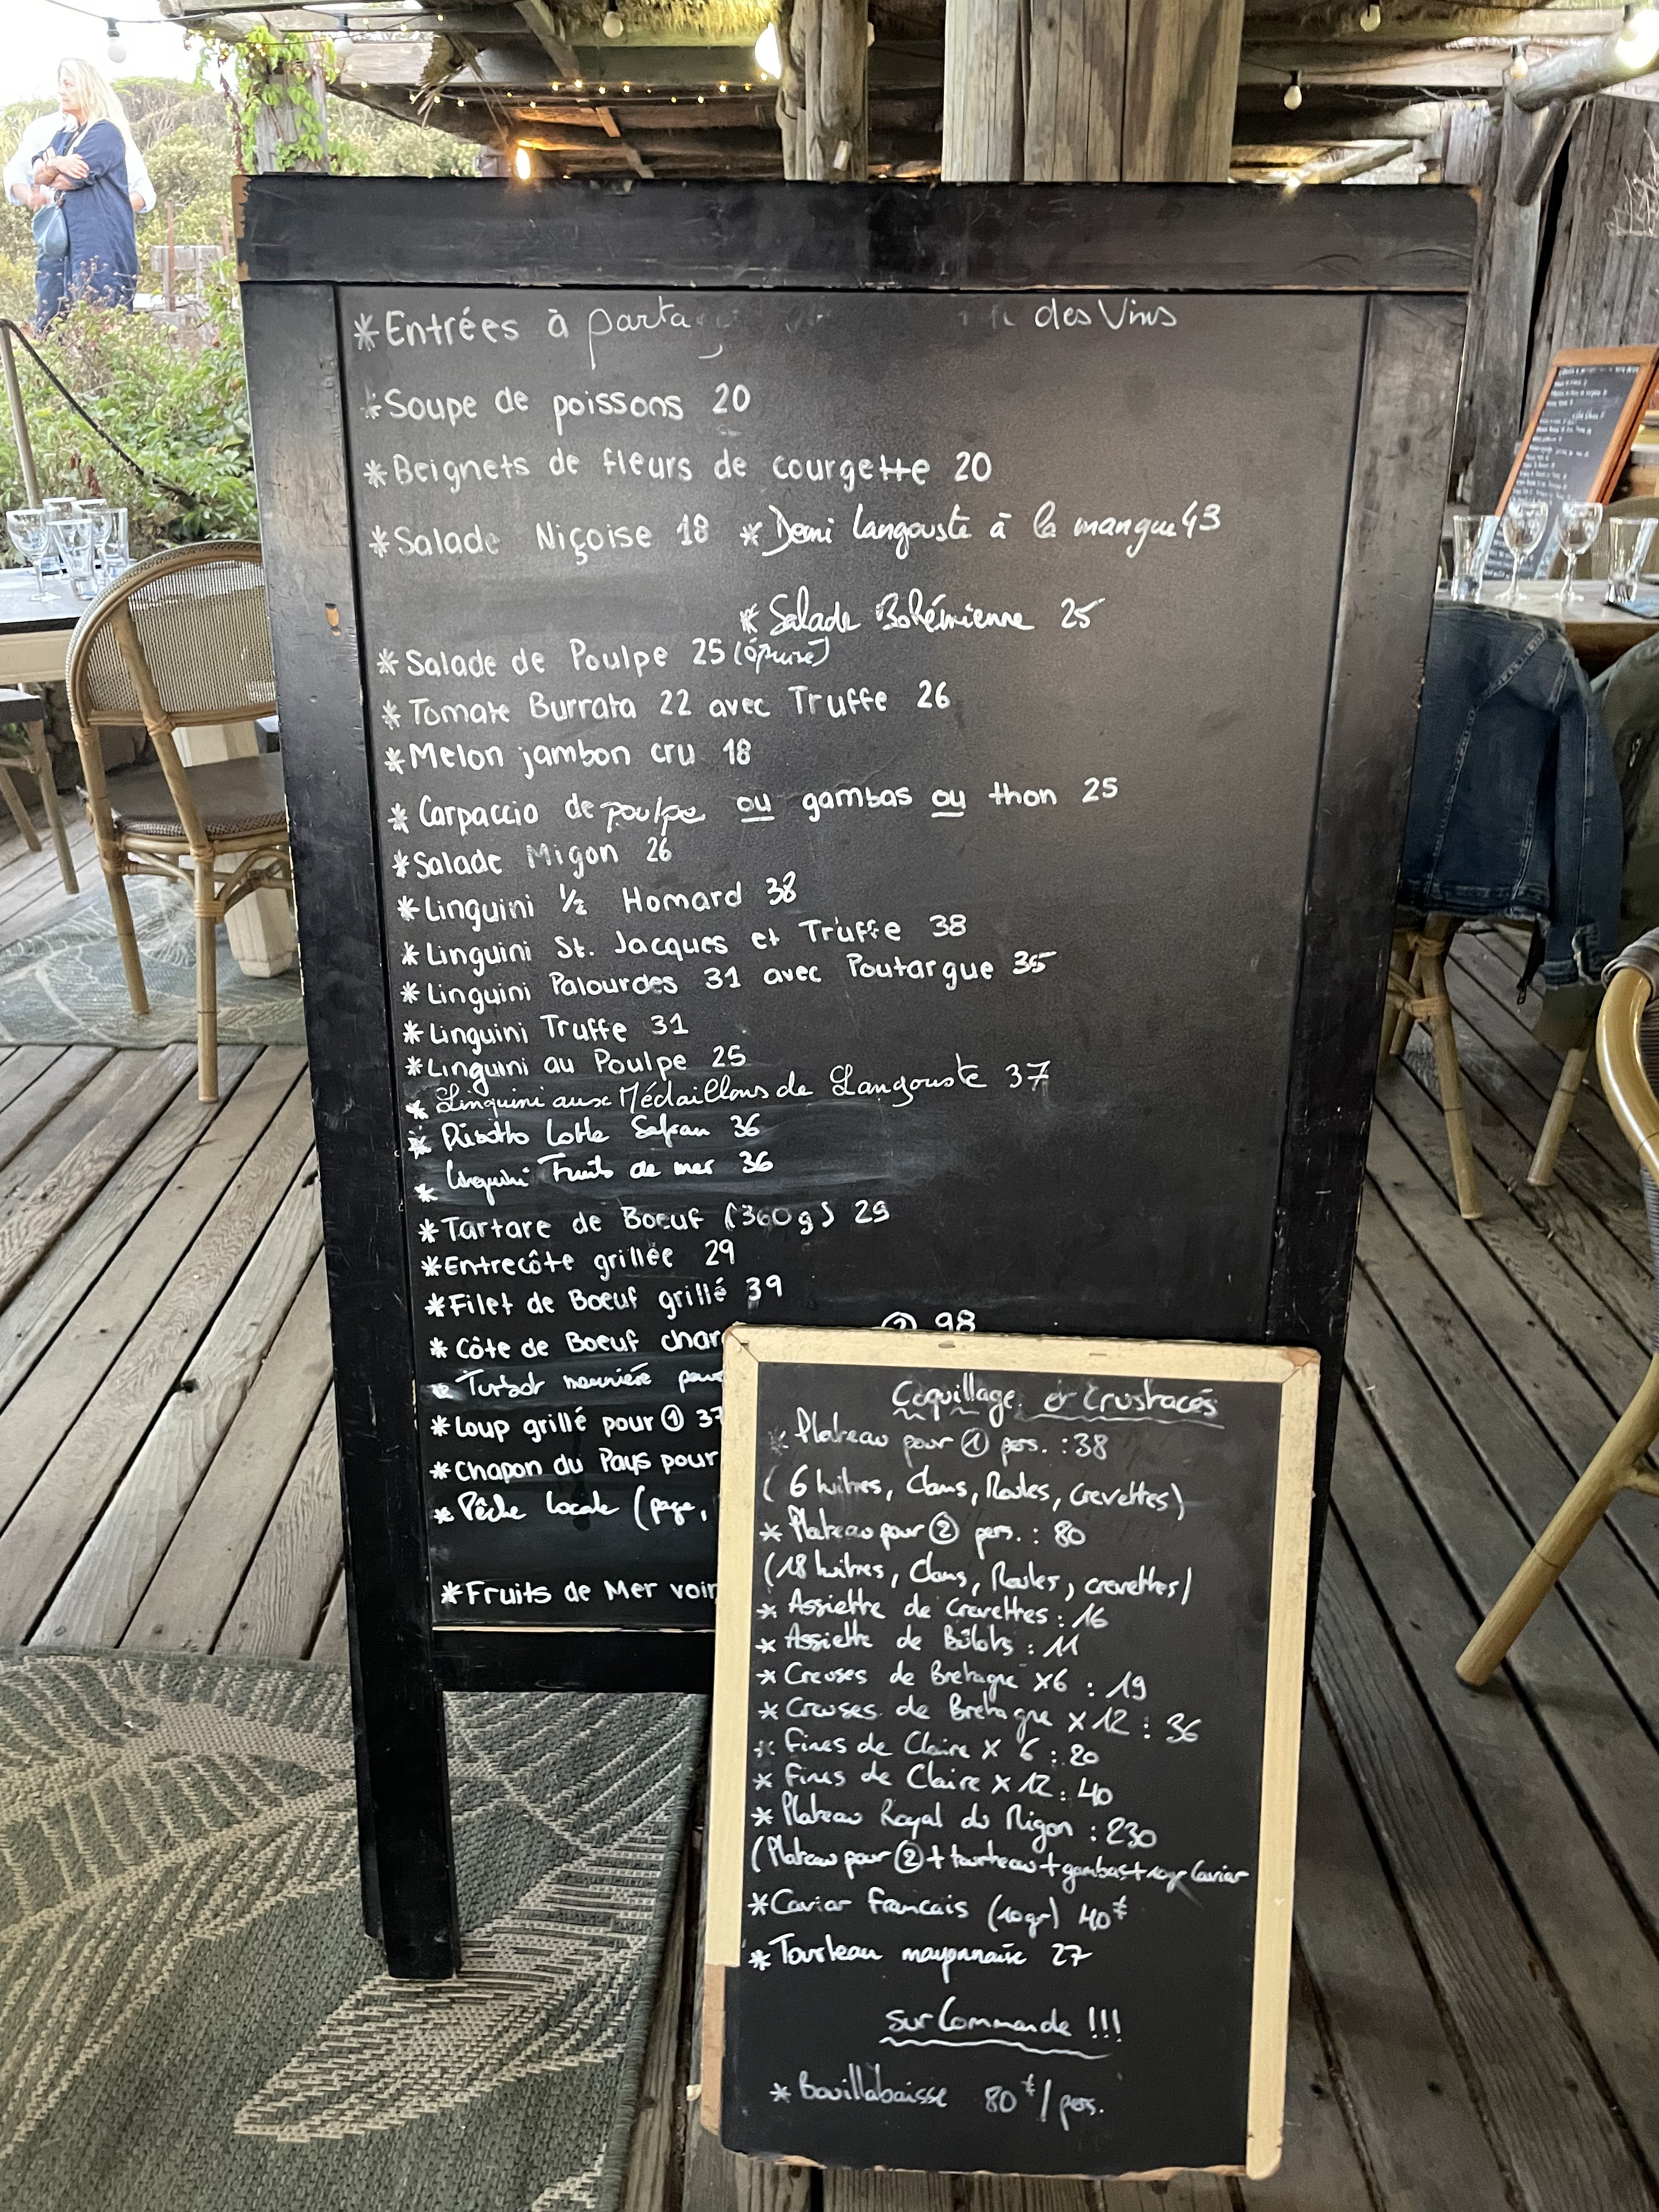 *Entrées à parta
des Vins
*Soupe de poissons 20
*Beignets de fleurs de courgette 20
*Salade Niçoise 18 *Demi langouste à la mangue 43
*Salade Bohémienne 25
*Salade de Poulpe 25
*Tomate Burrata 22 avec Truffe 26
*Melon jambon cru 18
*Carpaccio de poulpe ou gambas ou thon 25
*Salade Migon 26
*Linguini 1/2 Homard 38
*Linguini St. Jacques et Truffe 38
*Linguini Palourdes 31 avec Poutargue 35
*Linguini Truffe 31
*Linguini au Poulpe 25
*Linguini aux Médaillons de Langouste 37
*Risotto Lotte Safran 36
*Linguini Fruits de mer 36
*Tartare de Boeuf (360g) 29
*Entrecôte grillée 29
*Filet de Boeuf grillé 39
*Côte de Boeuf char ② 98
*Turbot meunière
*Loup grillé pour ① 37
*Chapon du Pays pour
*Pêche locale (page,
*Fruits de Mer voir
Coquillage et Crustacés
*Plateau pour ① pers. : 38
(6 huitres, Clams, Moules, Crevettes)
*Plateau pour ② pers. : 80
(18 huitres, Clams, Moules, crevettes)
*Assiette de Crevettes : 16
*Assiette de Bûlots : 11
*Creuses de Bretagne x6 : 19
*Creuses de Bretagne x 12 : 36
*Fines de Claire x 6 : 20
*Fines de Claire x 12 : 40
*Plateau Royal du Migon : 230
(Plateau pour ② + tourteau + gambas + 10gr Caviar
*Caviar Francais (10gr) 40€
*Tourteau mayonnaise 27
Sur Commande !!!
*Bouillabaisse 80€/pers.